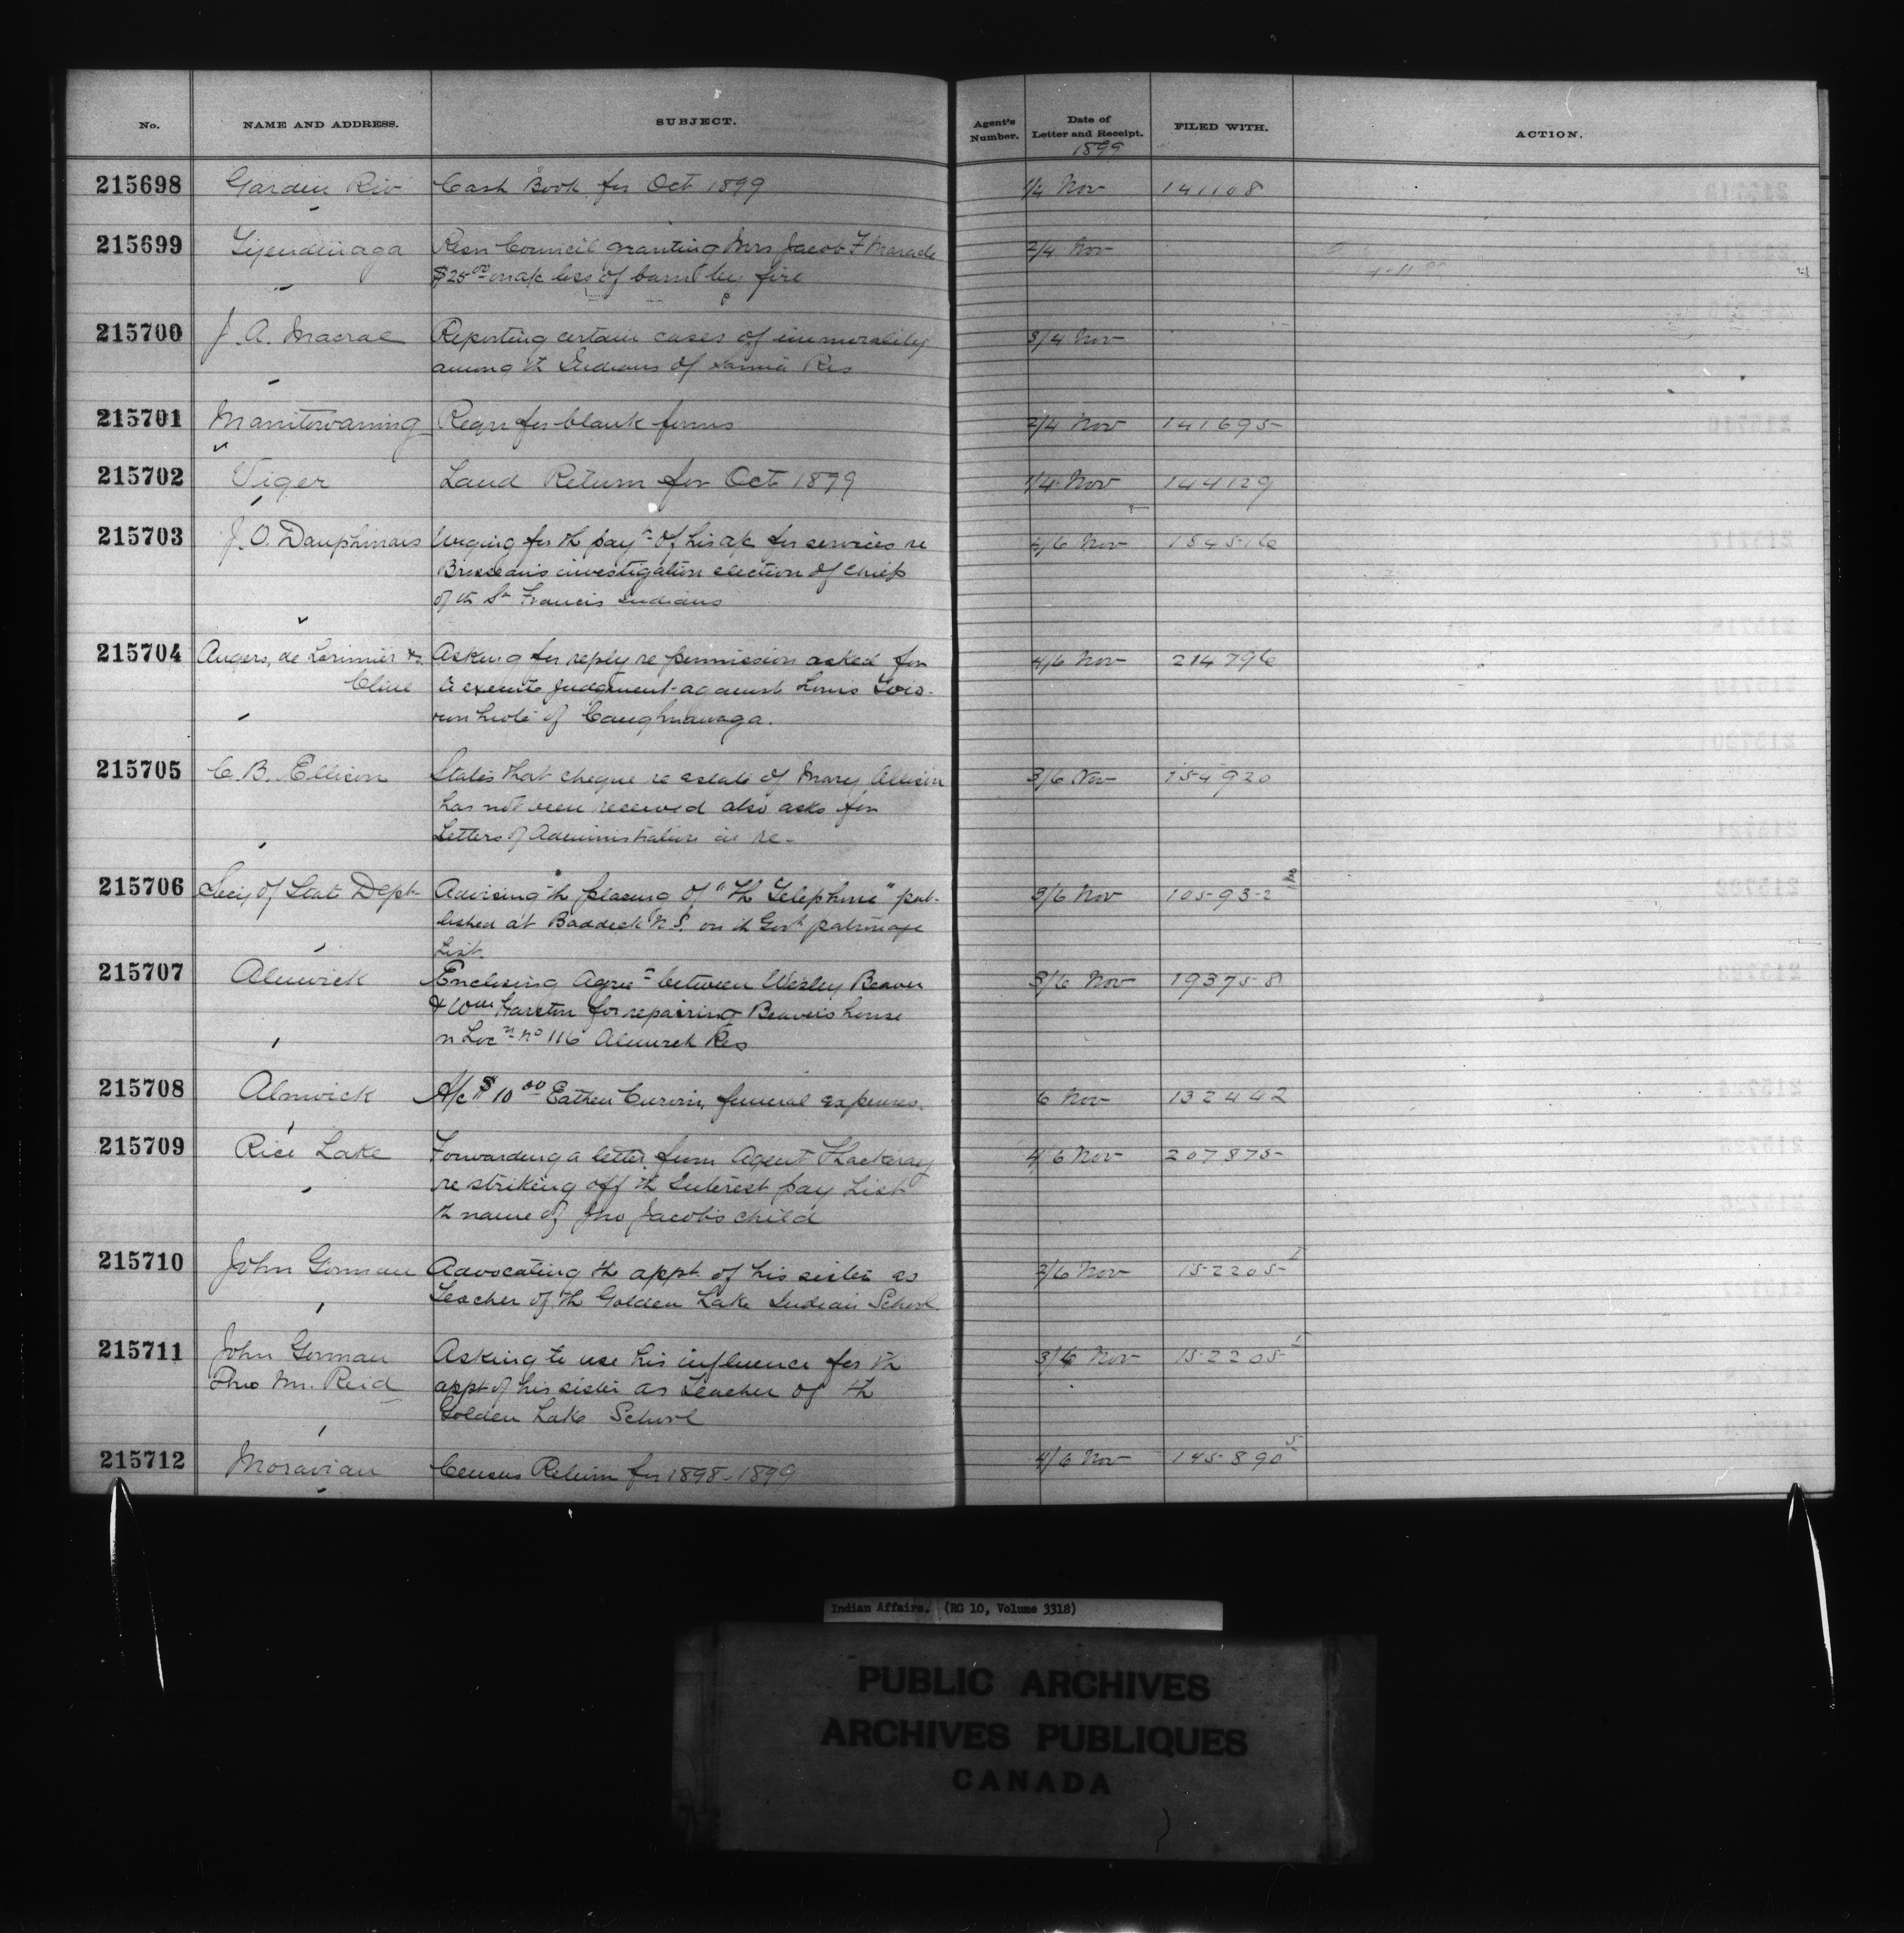 No. NAME AND ADDRESS. SUBJECT. Agent's Number. Date of Letter and Receipt. FILED WITH. ACTION.
1899
215698 Garden Riv Cash Book for Oct 1899 1/4 Nov 141108
215699 Tyendinaga Resn Council granting Mrs Jacob F Maracle 2/4 Nov
$25.00 on a/c loss of barn by fire
215700 J. A. Macrae Reporting certain cases of immorality 3/4 Nov
among th Indians of Sarnia Res
215701 Manitowaning Reqn for blank forms 2/4 Nov 141695
215702 Viger Land Return for Oct 1899 1/4 Nov 144129
215703 J. O. Dauphinais Urging for th payt of his a/c for services re 2/6 Nov 184516
investigation election of chiefs
of th St Francis Indians
215704 Angers, de Lorimier & Asking for reply re permission asked for 4/6 Nov 214796
Cline to execute judgment against Louis
of Caughnawaga.
215705 C. B. Ellison States that cheque re estate of Mary Allison 3/6 Nov 154920
has not been received also asks for
Letters of Administration in re-
215706 Secy of Stat Dept Advising th placing of "Th Telephone" pub- 3/6 Nov 105932
lished at Baddeck N.S. on th Govt patronage
List
215707 Alnwick Enclosing Agret between Wesley Beaver 3/6 Nov 193758
& Wm for repairing Beaver's house
n Locn no 116 Alnwick Res
215708 Alnwick A/c $10.00 funeral expenses. 6 Nov 132442
215709 Rice Lake Forwarding a letter from Agent Thackeray 4/6 Nov 207875
re striking off th Interest pay List
th name of Jno Jacob's child
215710 John Gorman Advocating th appt of his sister as 2/6 Nov 152205
Teacher of th Golden Lake Indian School
215711 John Gorman Asking to use his influence for th 3/6 Nov 152205
Thro Mr. Reid appt of his sister as Teacher of th
Golden Lake School
215712 Moravian Census Return for 1898-1899 4/6 Nov 145890 5
Indian Affairs. (RG 10, Volume 3318)
PUBLIC ARCHIVES
ARCHIVES PUBLIQUES
CANADA